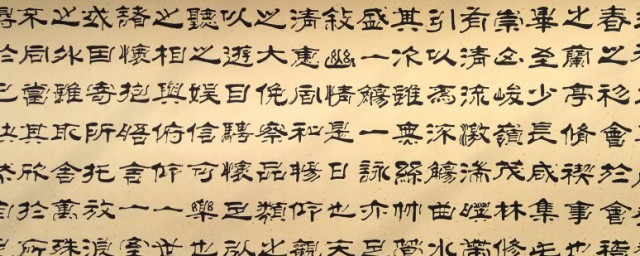 春之初會於會稽
之蘭亭脩禊事也
畢至少長咸集此
崇山峻嶺茂林修
有清流激湍暎帶
引以為流觴曲水
其次雖無絲竹管
盛一觴一詠亦足
敘幽情是日也天
清惠風和暢仰觀
之大俛察品類之
以遊目騁懷足以
聽之娛信可樂也
之相與俯仰一世
諸懷抱晤言一室
或因寄所托放浪
之外雖取舍萬殊
不同當其欣於所
得於己快然自